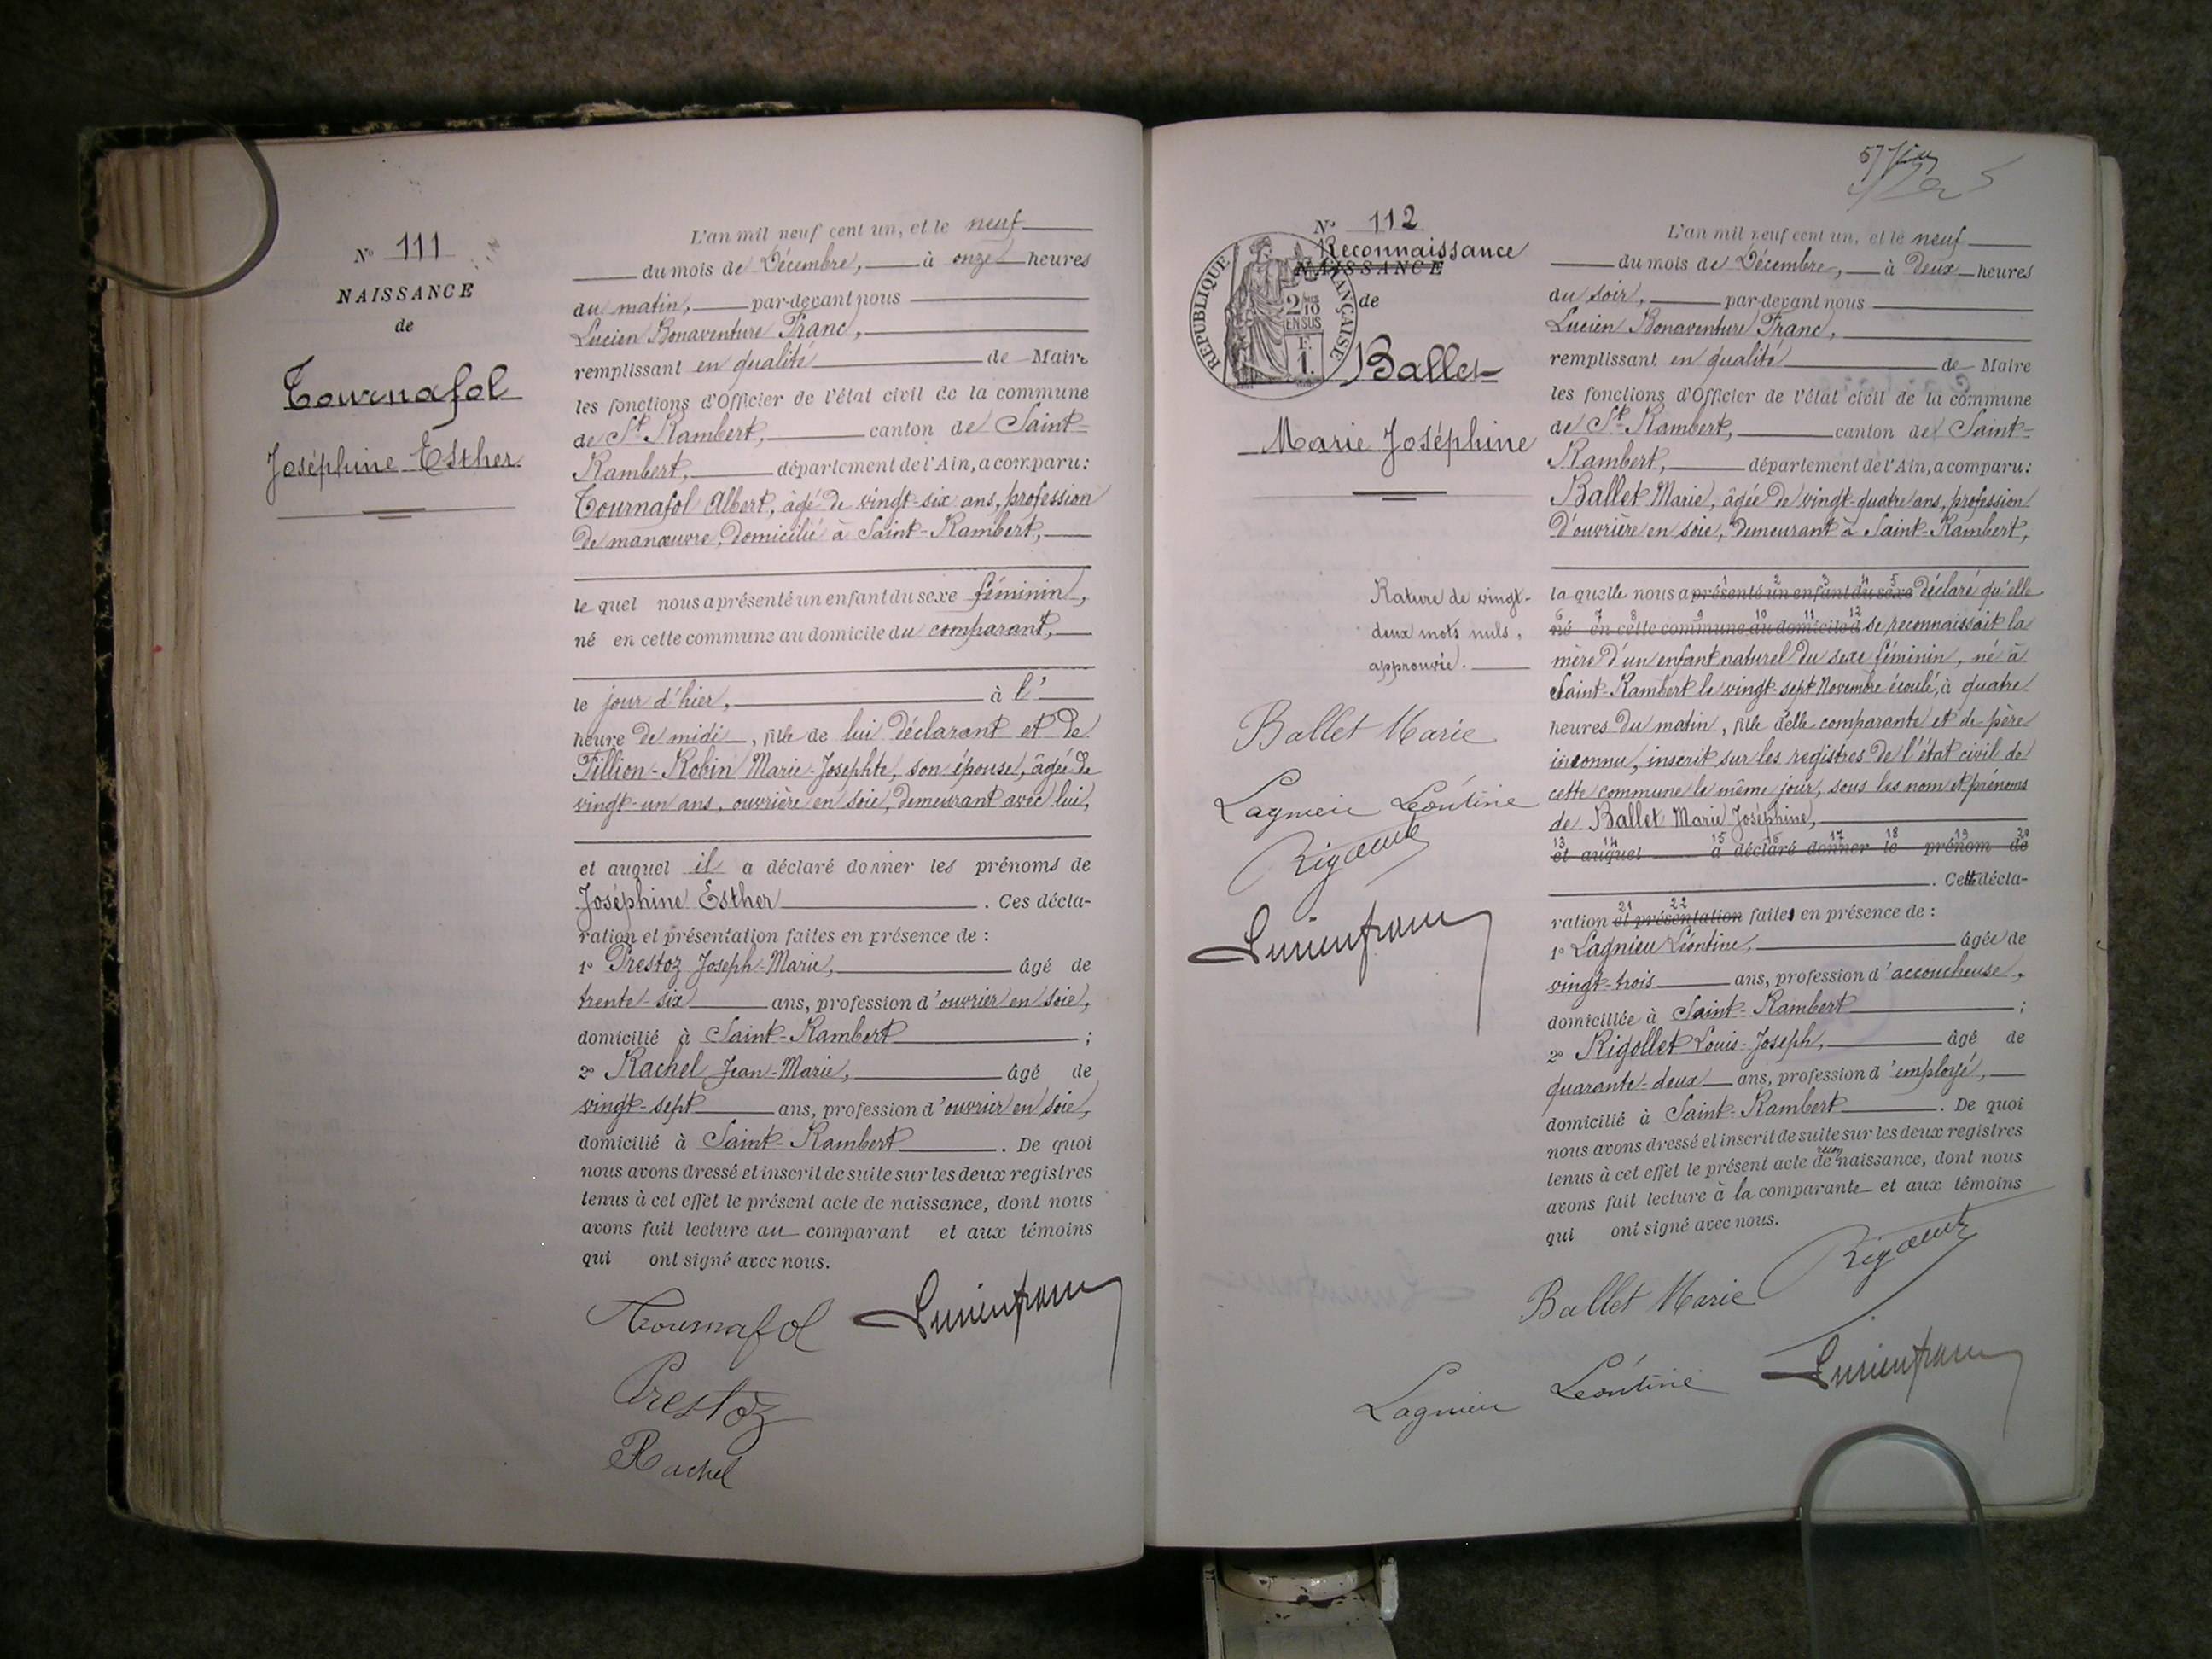 N° 111
NAISSANCE
de
Tournafol
Joséphine Esther
L'an mil neuf cent un, et le neuf
du mois de Décembre, à onze heures
du matin, par-devant nous
Lucien Bonaventure Franc,
remplissant en qualité de Maire
les fonctions d'Officier de l'état civil de la commune
de St Rambert, canton de Saint-
Rambert, département de l'Ain, a comparu:
Tournafol Albert, âgé de vingt-six ans, profession
de manœuvre, domicilié à Saint-Rambert,
le quel nous a présenté un enfant du sexe féminin,
né en cette commune au domicile du comparant,
le jour d'hier, à l'
heure de midi, fille de lui déclarant et de
Fillion-Robin Marie-Josephte, son épouse, âgée de
vingt-un ans, ouvrière en soie, demeurant avec lui,
et auquel il a déclaré donner les prénoms de
Joséphine Esther. Ces décla-
ration et présentation faites en présence de:
1° Prestoz Joseph-Marie, âgé de
trente-six ans, profession d'ouvrier en soie,
domicilié à Saint-Rambert;
2° Rachel Jean-Marie, âgé de
vingt-sept ans, profession d'ouvrier en soie,
domicilié à Saint-Rambert. De quoi
nous avons dressé et inscrit de suite sur les deux registres
tenus à cet effet le présent acte de naissance, dont nous
avons fait lecture au comparant et aux témoins
qui ont signé avec nous.
Tournafol Lucien franc
Prestoz
Rachel
N° 112
Reconnaissance
NAISSANCE
de
REPUBLIQUE FRANÇAISE
2/10
EN SUS
F.
1.
Ballet
Marie Joséphine
Rature de vingt-
deux mots nuls,
approuvée.
Ballet Marie
Lagnieu Léontine
Lucien franc
L'an mil neuf cent un, et le neuf
du mois de Décembre, à deux heures
du soir, par-devant nous
Lucien Bonaventure Franc,
remplissant en qualité de Maire
les fonctions d'Officier de l'état civil de la commune
de St Rambert, canton de Saint-
Rambert, département de l'Ain, a comparu:
Ballet Marie, âgée de vingt-quatre ans, profession
d'ouvrière en soie, demeurant à Saint-Rambert,
1 2 3 4 5
la quelle nous a présenté un enfant du sexe déclaré qu'elle
6 7 8 9 10 11 12
né en cette commune au domicile d se reconnaissait la
mère d'un enfant naturel du sexe féminin, né à
Saint-Rambert le vingt-sept Novembre écoulé, à quatre
heures du matin, fille d'elle comparante et de père
inconnu, inscrit sur les registres de l'état civil de
cette commune le même jour, sous les nom et prénoms
de Ballet Marie Joséphine,
13 14 15 16 17 18 19 20
et auquel a déclaré donner le prénom de
. Cette décla-
21 22
ration et présentation faite en présence de:
1° Lagnieu Léontine, âgée de
vingt-trois ans, profession d'accoucheuse,
domiciliée à Saint-Rambert;
2° Rigollet Louis-Joseph, âgé de
quarante-deux ans, profession d'employé,
domicilié à Saint-Rambert. De quoi
nous avons dressé et inscrit de suite sur les deux registres
tenus à cet effet le présent acte de reconnaissance, dont nous
avons fait lecture à la comparante et aux témoins
qui ont signé avec nous.
Ballet Marie
Lagnieu Léontine Lucien franc